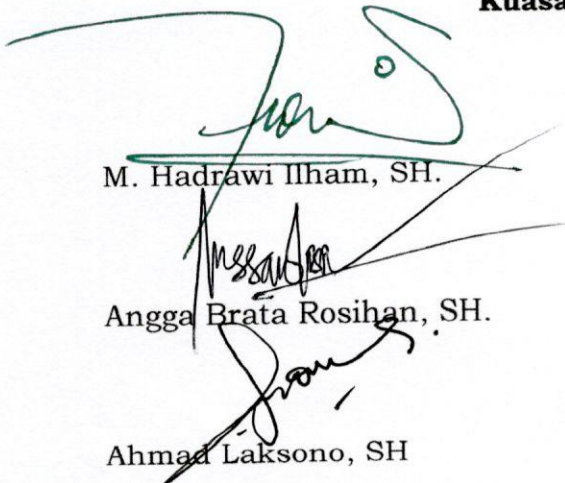 Kuasa
M. Hadrawi Ilham, SH.
Angga Brata Rosihan, SH.
Ahmad Laksono, SH